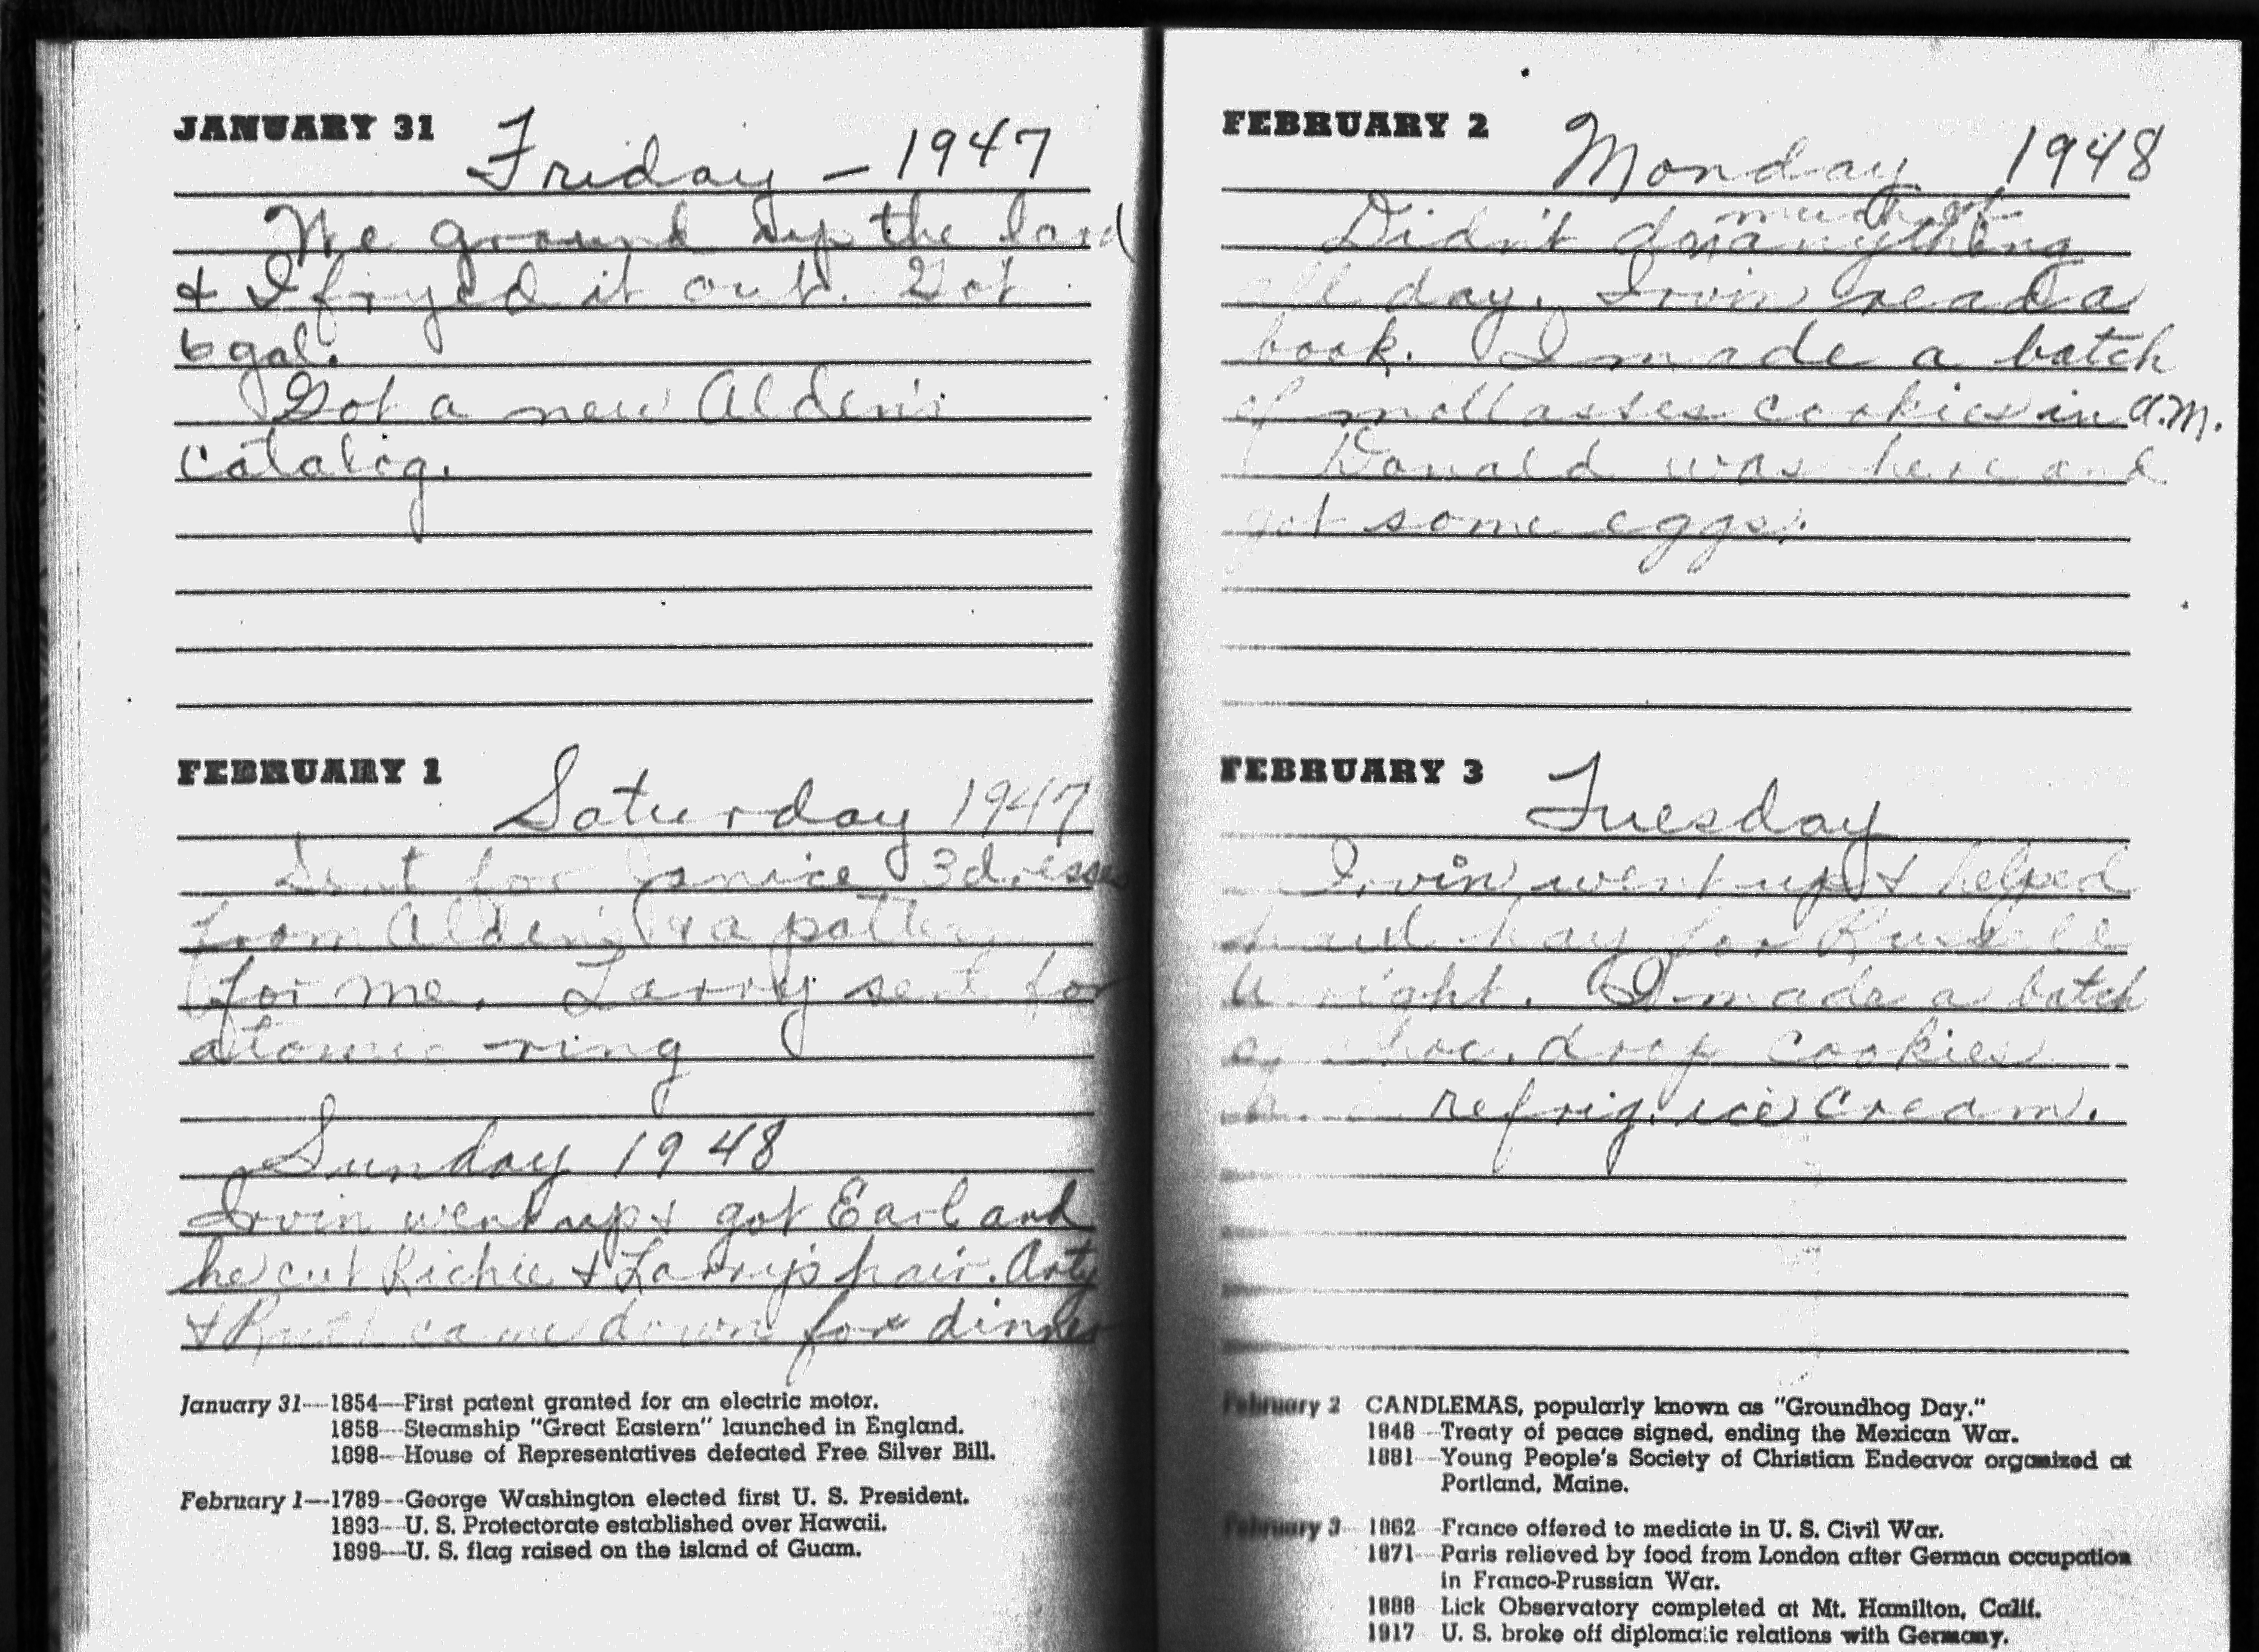 JANUARY 31 Friday – 1947
We ground up the lard
& I fryed it out. Got
6 gal.
Got a new Alden's
Catalog.
FEBRUARY 1 Saturday 1947
Sent for Janice 3 dresses
from Alden's & a pattern
for me. Larry sent for
atomic ring
Sunday 1948
Irvin went up & got Earl and
he cut Richie & Larry's hair. Arty
& Ruth came down for dinner
January 31—1854—First patent granted for an electric motor.
1858—Steamship "Great Eastern" launched in England.
1898—House of Representatives defeated Free Silver Bill.
February 1—1789—George Washington elected first U. S. President.
1893—U. S. Protectorate established over Hawaii.
1899—U. S. flag raised on the island of Guam.
FEBRUARY 2 Monday 1948
much of
Didn't do anything
all day. Irvin read a
book. I made a batch
of mollasses cookies in a.m.
Donald was here and
got some eggs.
FEBRUARY 3 Tuesday
Irvin went up & helped
haul hay for Russell
Wright. I made a batch
of choc. drop cookies
refrig. ice cream.
February 2 CANDLEMAS, popularly known as "Groundhog Day."
1848—Treaty of peace signed, ending the Mexican War.
1881—Young People's Society of Christian Endeavor organized at
Portland, Maine.
February 3—1862—France offered to mediate in U. S. Civil War.
1871—Paris relieved by food from London after German occupation
in Franco-Prussian War.
1888—Lick Observatory completed at Mt. Hamilton, Calif.
1917—U. S. broke off diplomatic relations with Germany.